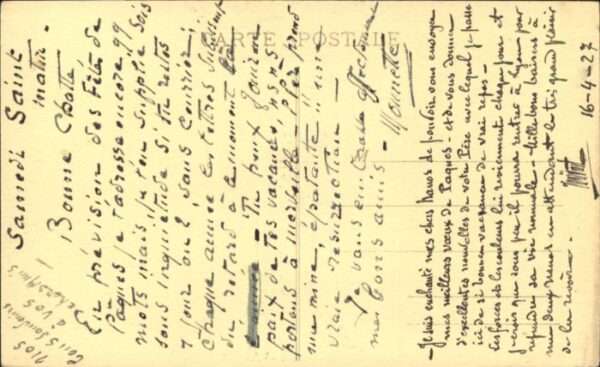 CARTE POSTALE
Samedi Saint
matin.
Bonne Chatte
En prévision des Fêtes de
Pâques je t'adresse encore qq
mots mais je t'en supplie sois
sans inquiétude si tu restes
1 jour ou 2 sans courrier;
chaque année les lettres subissent
du retard à ce moment là
Tu peux jouir en
paix de tes vacances, nous nous
portons à merveille, Père prend
une mine épatante, c'est une
vraie resurrection —
Je vous embrasse
mes bons amis.
- Je suis enchanté mes chers neveux de pouvoir vous envoyer
mes meilleurs vœux de Pâques! et de vous donner
d'excellentes nouvelles de votre Père avec lequel je passe
ici de si bonnes vacances de vrai repos -
Les forces et les couleurs lui reviennent chaque jour et
je crois que sous peu il pourra rentrer à Lyon pour
reprendre sa vie normale - Mille bons baisers à
mes deux neveux en attendant le très grand plaisir
de les revoir -
16-4-27